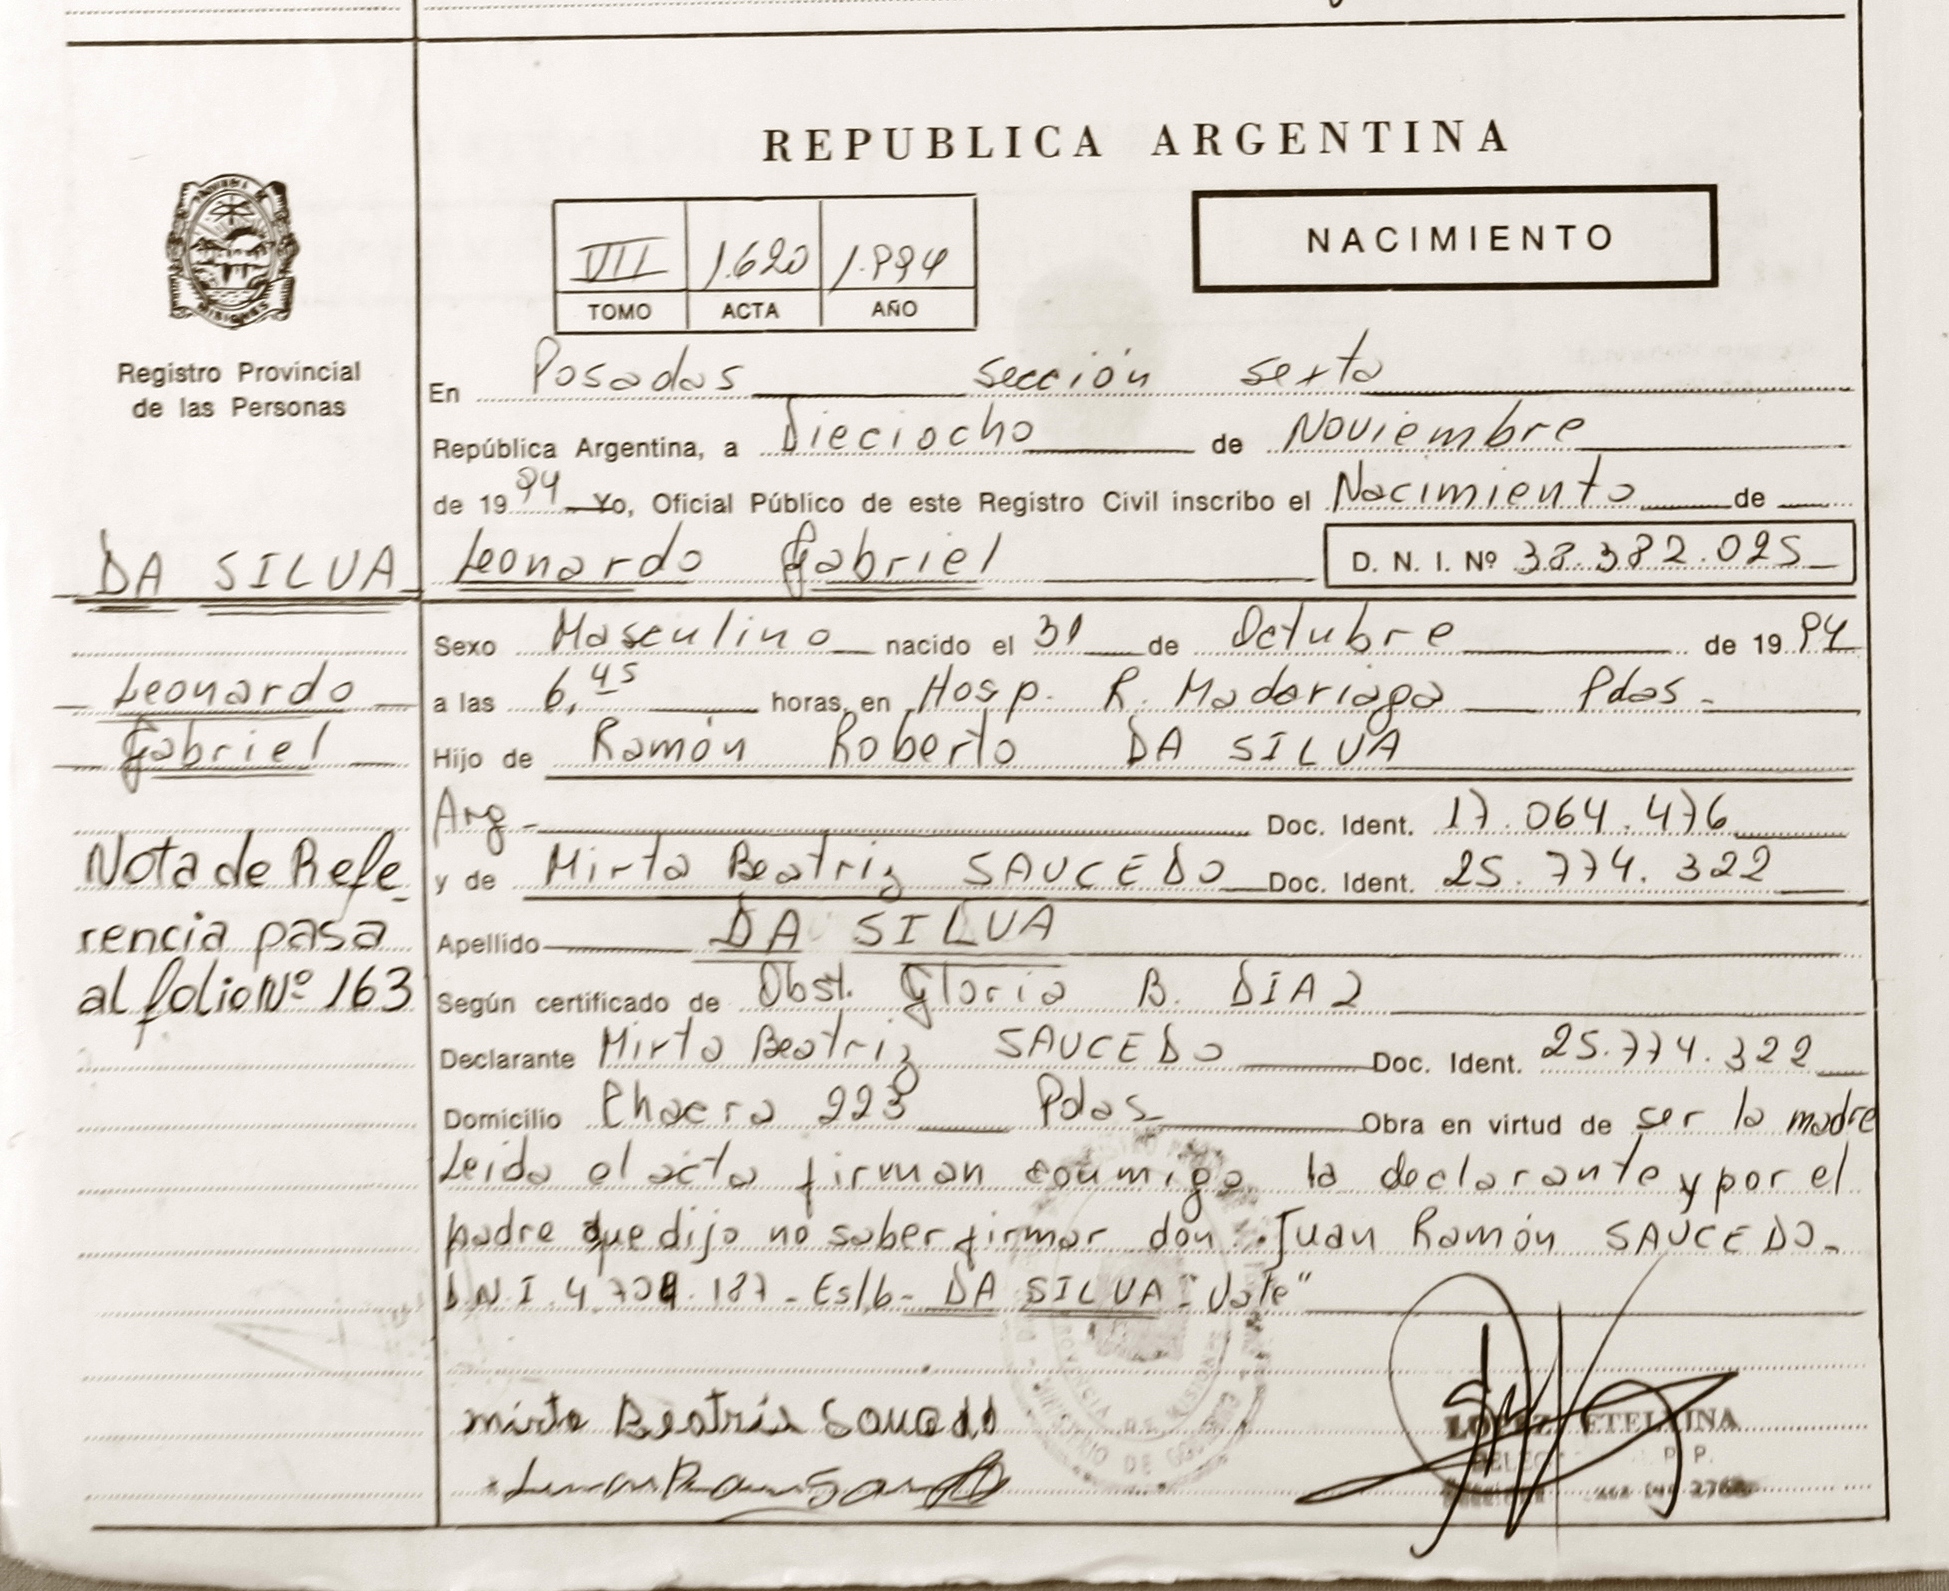 REPUBLICA ARGENTINA
NACIMIENTO
VII 1.620 1.994
TOMO ACTA AÑO
Registro Provincial
de las Personas
En Posadas sección sexta
República Argentina, a Dieciocho de Noviembre
de 1994 Yo, Oficial Público de este Registro Civil inscribo el Nacimiento de
DA SILVA Leonardo Gabriel D. N. I. Nº 38.382.025
Sexo Masculino nacido el 31 de Octubre de 1994
Leonardo
Gabriel
a las 6,45 horas, en Hosp. R. Madariaga Pdas-
Hijo de Ramón Roberto DA SILVA
Arg- Doc. Ident. 17.064.476
y de Mirta Beatriz SAUCEDO Doc. Ident. 25.774.322
Nota de Refe-
rencia pasa
al folio Nº 163
Apellido DA SILVA
Según certificado de Obst. Gloria B. DIAZ
Declarante Mirta Beatriz SAUCEDO Doc. Ident. 25.774.322
Domicilio Chacra 223 Pdas- Obra en virtud de ser la madre
Leida el acta firman conmigo la declarante y por el
padre que dijo no saber firmar don Juan Ramón SAUCEDO-
D.N.I. 187- Es/b- DA SILVA-"Vale"
Mirta Beatriz Saucedo
LOPEZ ETELVINA